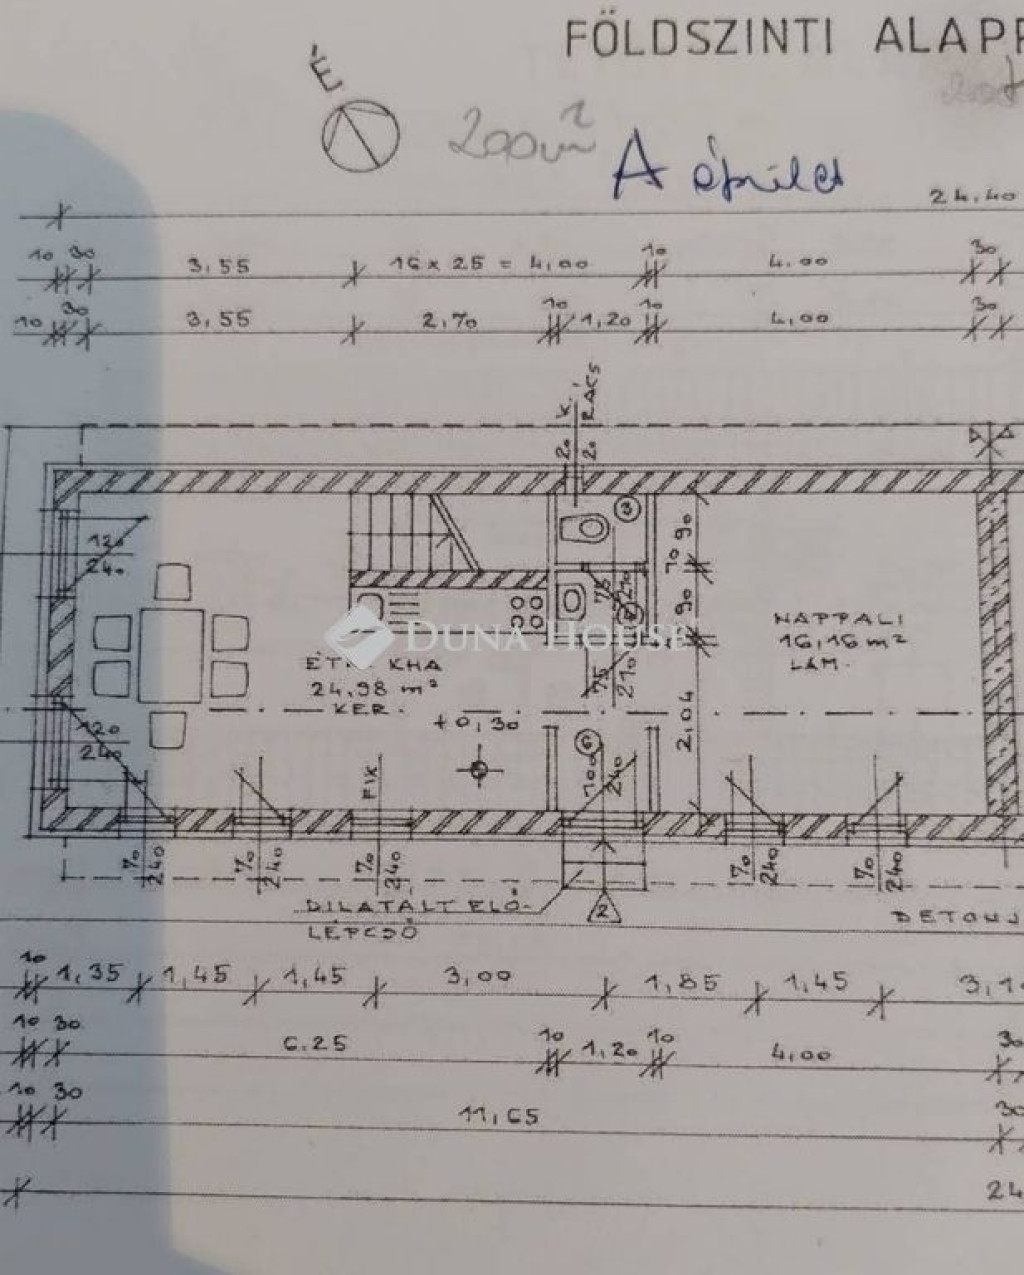 FÖLDSZINTI ALAPR
É
200m²
A épület
24.40
10 30 3,55 16 x 25 = 4,00 10 4.00 30
10 30 3,55 2,70 10 1,20 10 4,00 30
20 K.
20 RÁCS
3
120
240
75
210
10 90
90
NAPPALI
16,16 m²
LAM.
DUNA HOUSE
ÉTK. KHA
24,98 m²
KER.
+0,30
75
210
2,04
120
240
6
100
240
FIX
70
240
70
240
70
240
70
240
70
240
2
DILATÁLT ELŐ-
LÉPCSŐ
DETONJ
10 1,35 1,45 1,45 3,00 1,85 1,45 3,10
10 30 6.25 10 1,20 10 4,00 30
10 30 11,65 30
24